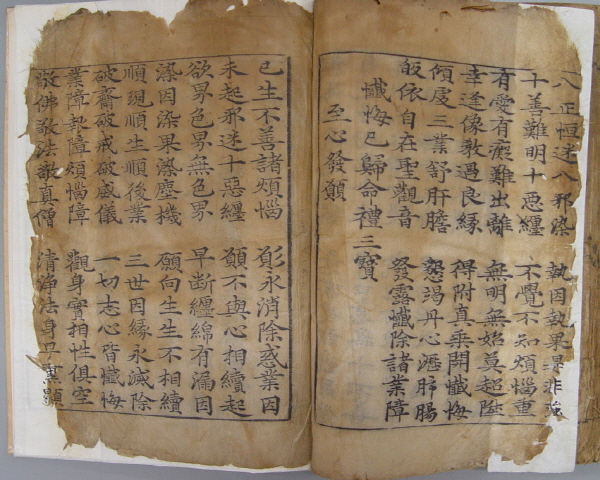 八正恒迷八邪染　執因執果　非強
十善難明十惡纏　不覺不知煩惱重
有愛有癡難出離　無明無始莫超陞
幸逢像教過良緣　得附真乗開懺悔
傾虔三業舒肝膽　懇竭丹心瀝肺腸
皈依自在聖觀音　發露懺除諸業障
懺悔已歸命禮三寶
至心發願
已生不善諸煩惱　願永消除惑業因
未起邪迷十惡纏　願不與心相續起
欲界色界無色界　早斷纏綿有漏因
染因染果染塵機　願向生生不相續
順現順生順後業　三世因緣永滅除
破齋破戒破威儀　一切志心皆懺悔
業障報障煩惱障　觀身實相性俱空
敬佛敬法敬真僧　清淨法身早　顯